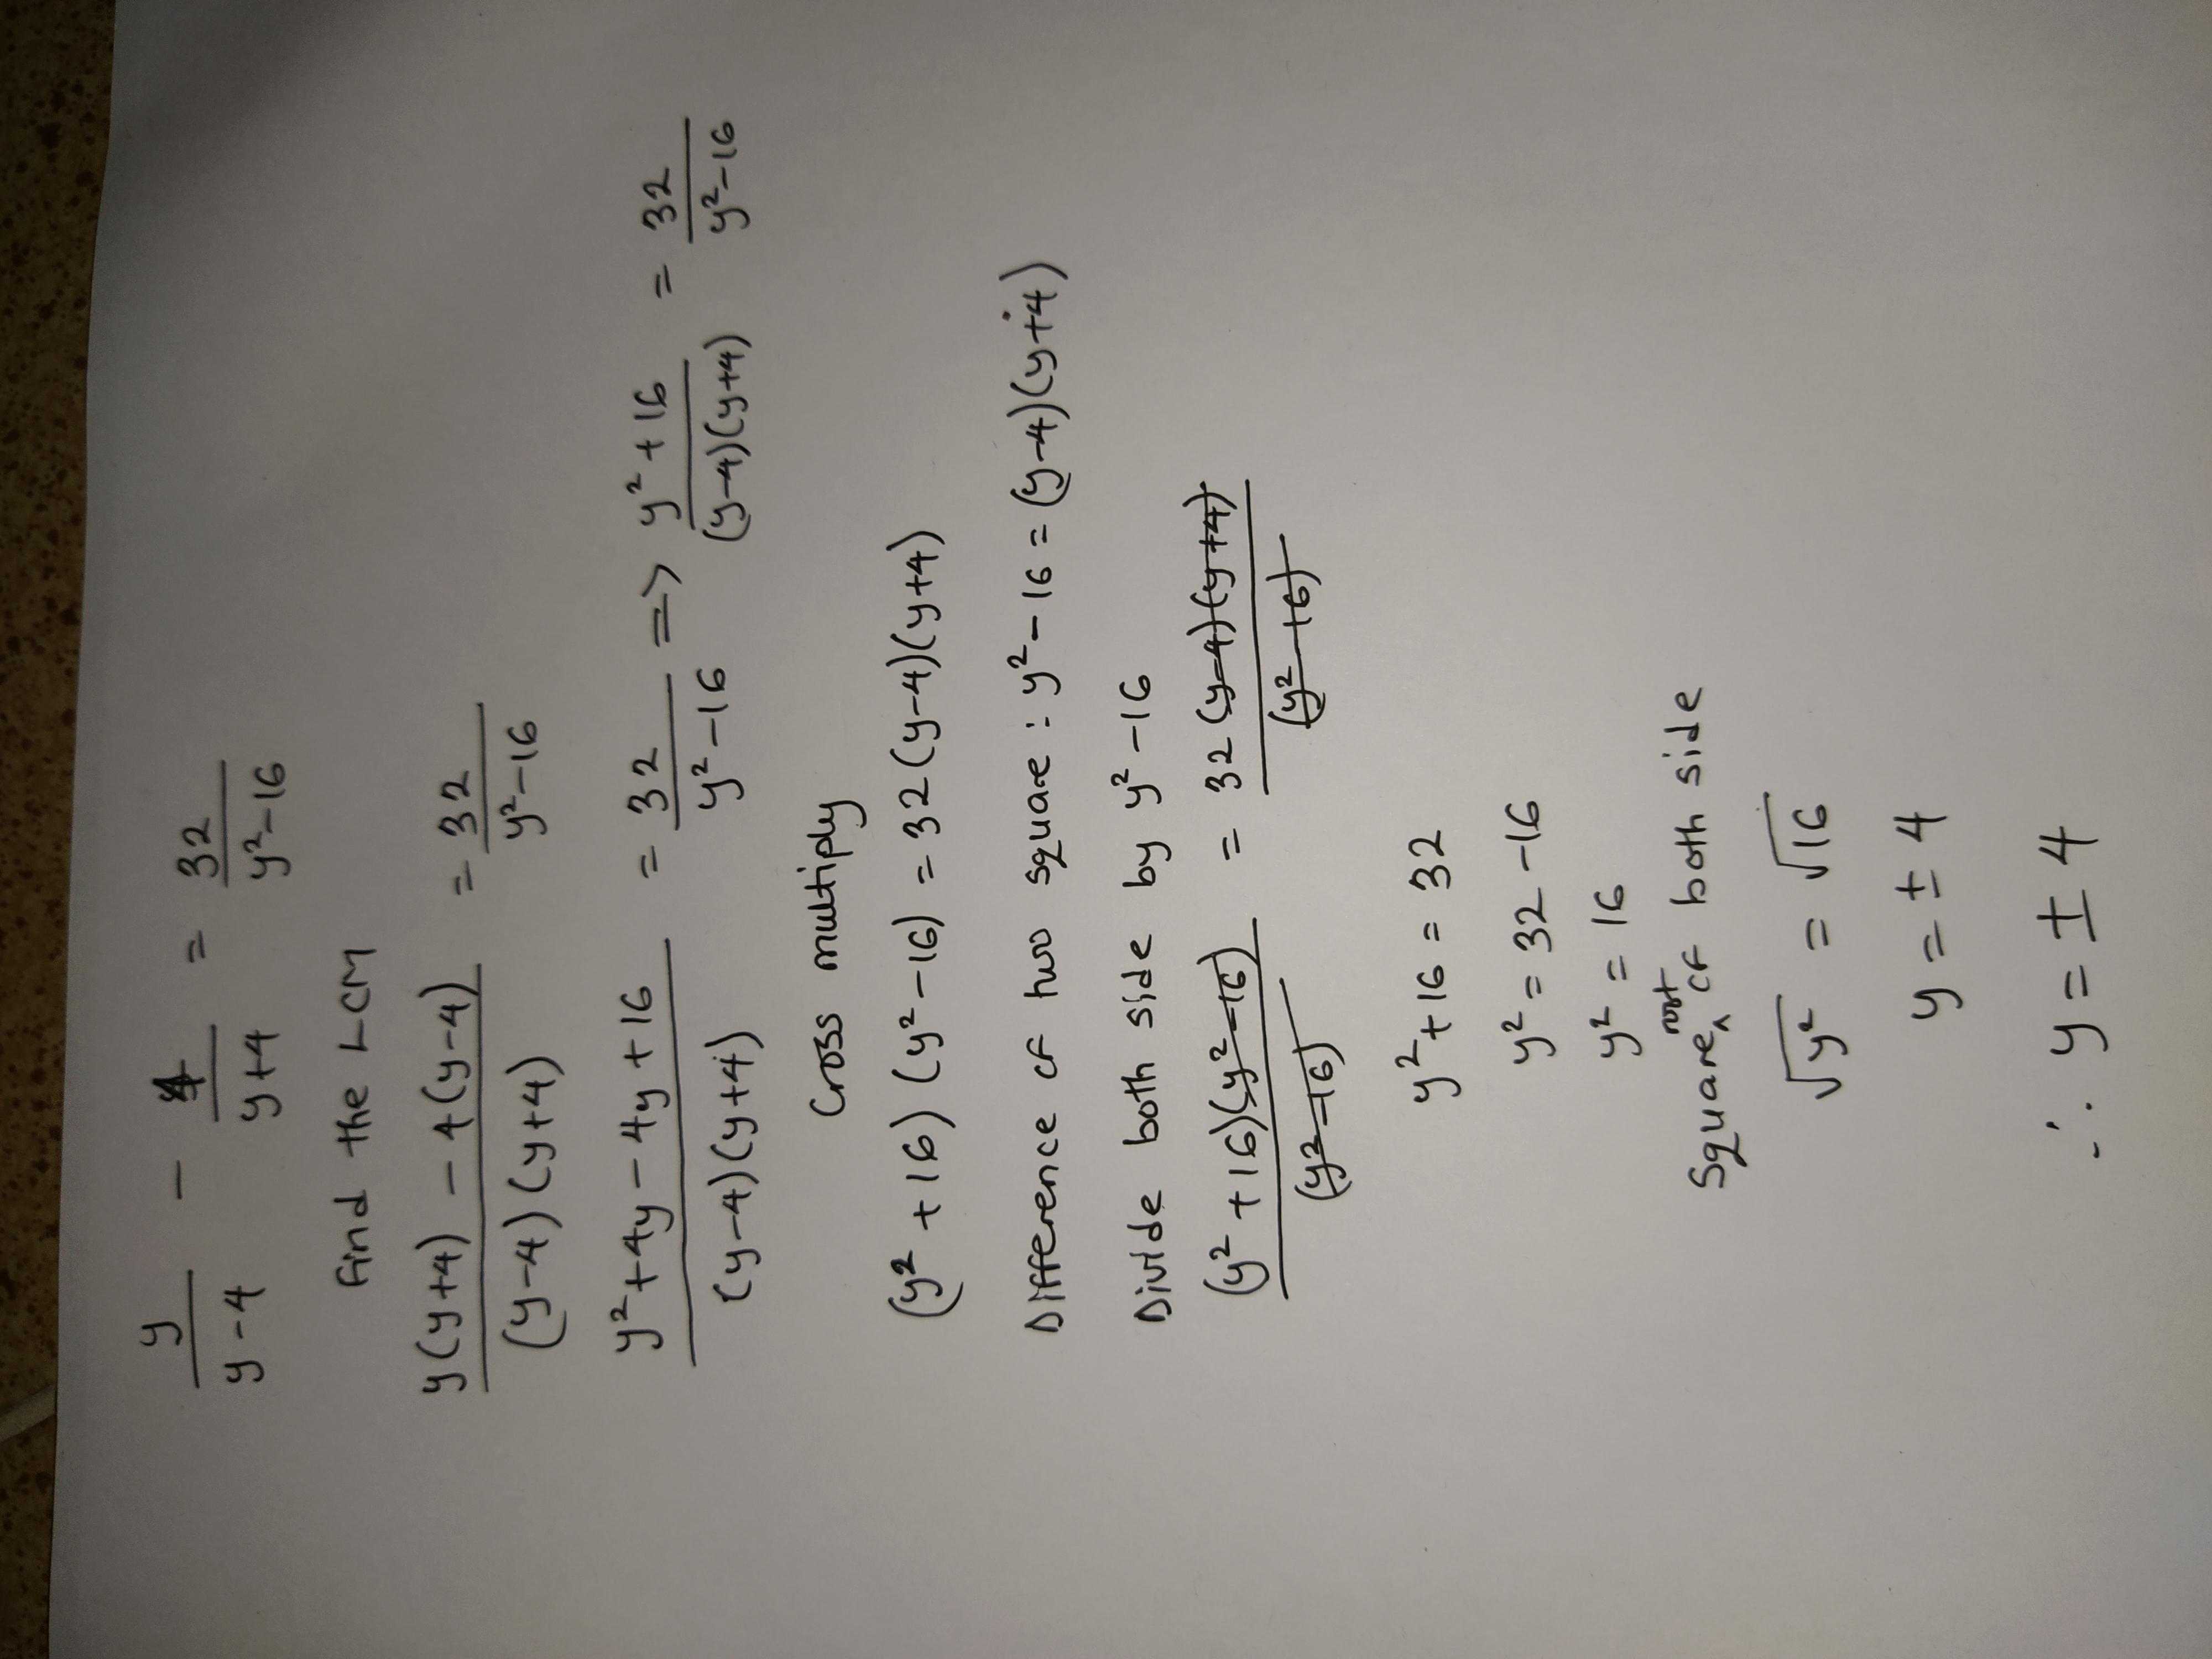 y/(y-4) - 4/(y+4) = 32/(y²-16)
find the LCM
(y(y+4) - 4(y-4))/((y-4)(y+4)) = 32/(y²-16)
(y²+4y-4y+16)/((y-4)(y+4)) = 32/(y²-16) => (y²+16)/((y-4)(y+4)) = 32/(y²-16)
Cross multiply
(y²+16)(y²-16) = 32(y-4)(y+4)
Difference of two square: y²-16 = (y-4)(y+4)
Divide both side by y²-16
(y²+16)(y²-16)/(y²-16) = 32(y-4)(y+4)/(y²-16)
y²+16 = 32
y² = 32-16
y² = 16
Square root of both side
√y² = √16
y = ± 4
∴ y = ± 4